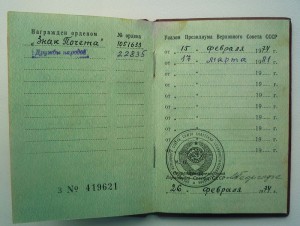 Награжден орденом № ордена
"Знак Почета" 1051633
Дружбы народов 22835
З № 419621
Указом Президиума Верховного Совета СССР
от „15 февраля 1974
от „17 марта 1981
от „ 19
от „ 19
от „ 19
от „ 19
от „ 19
от „ 19
Верховного Совета СССР
26 февраля 74